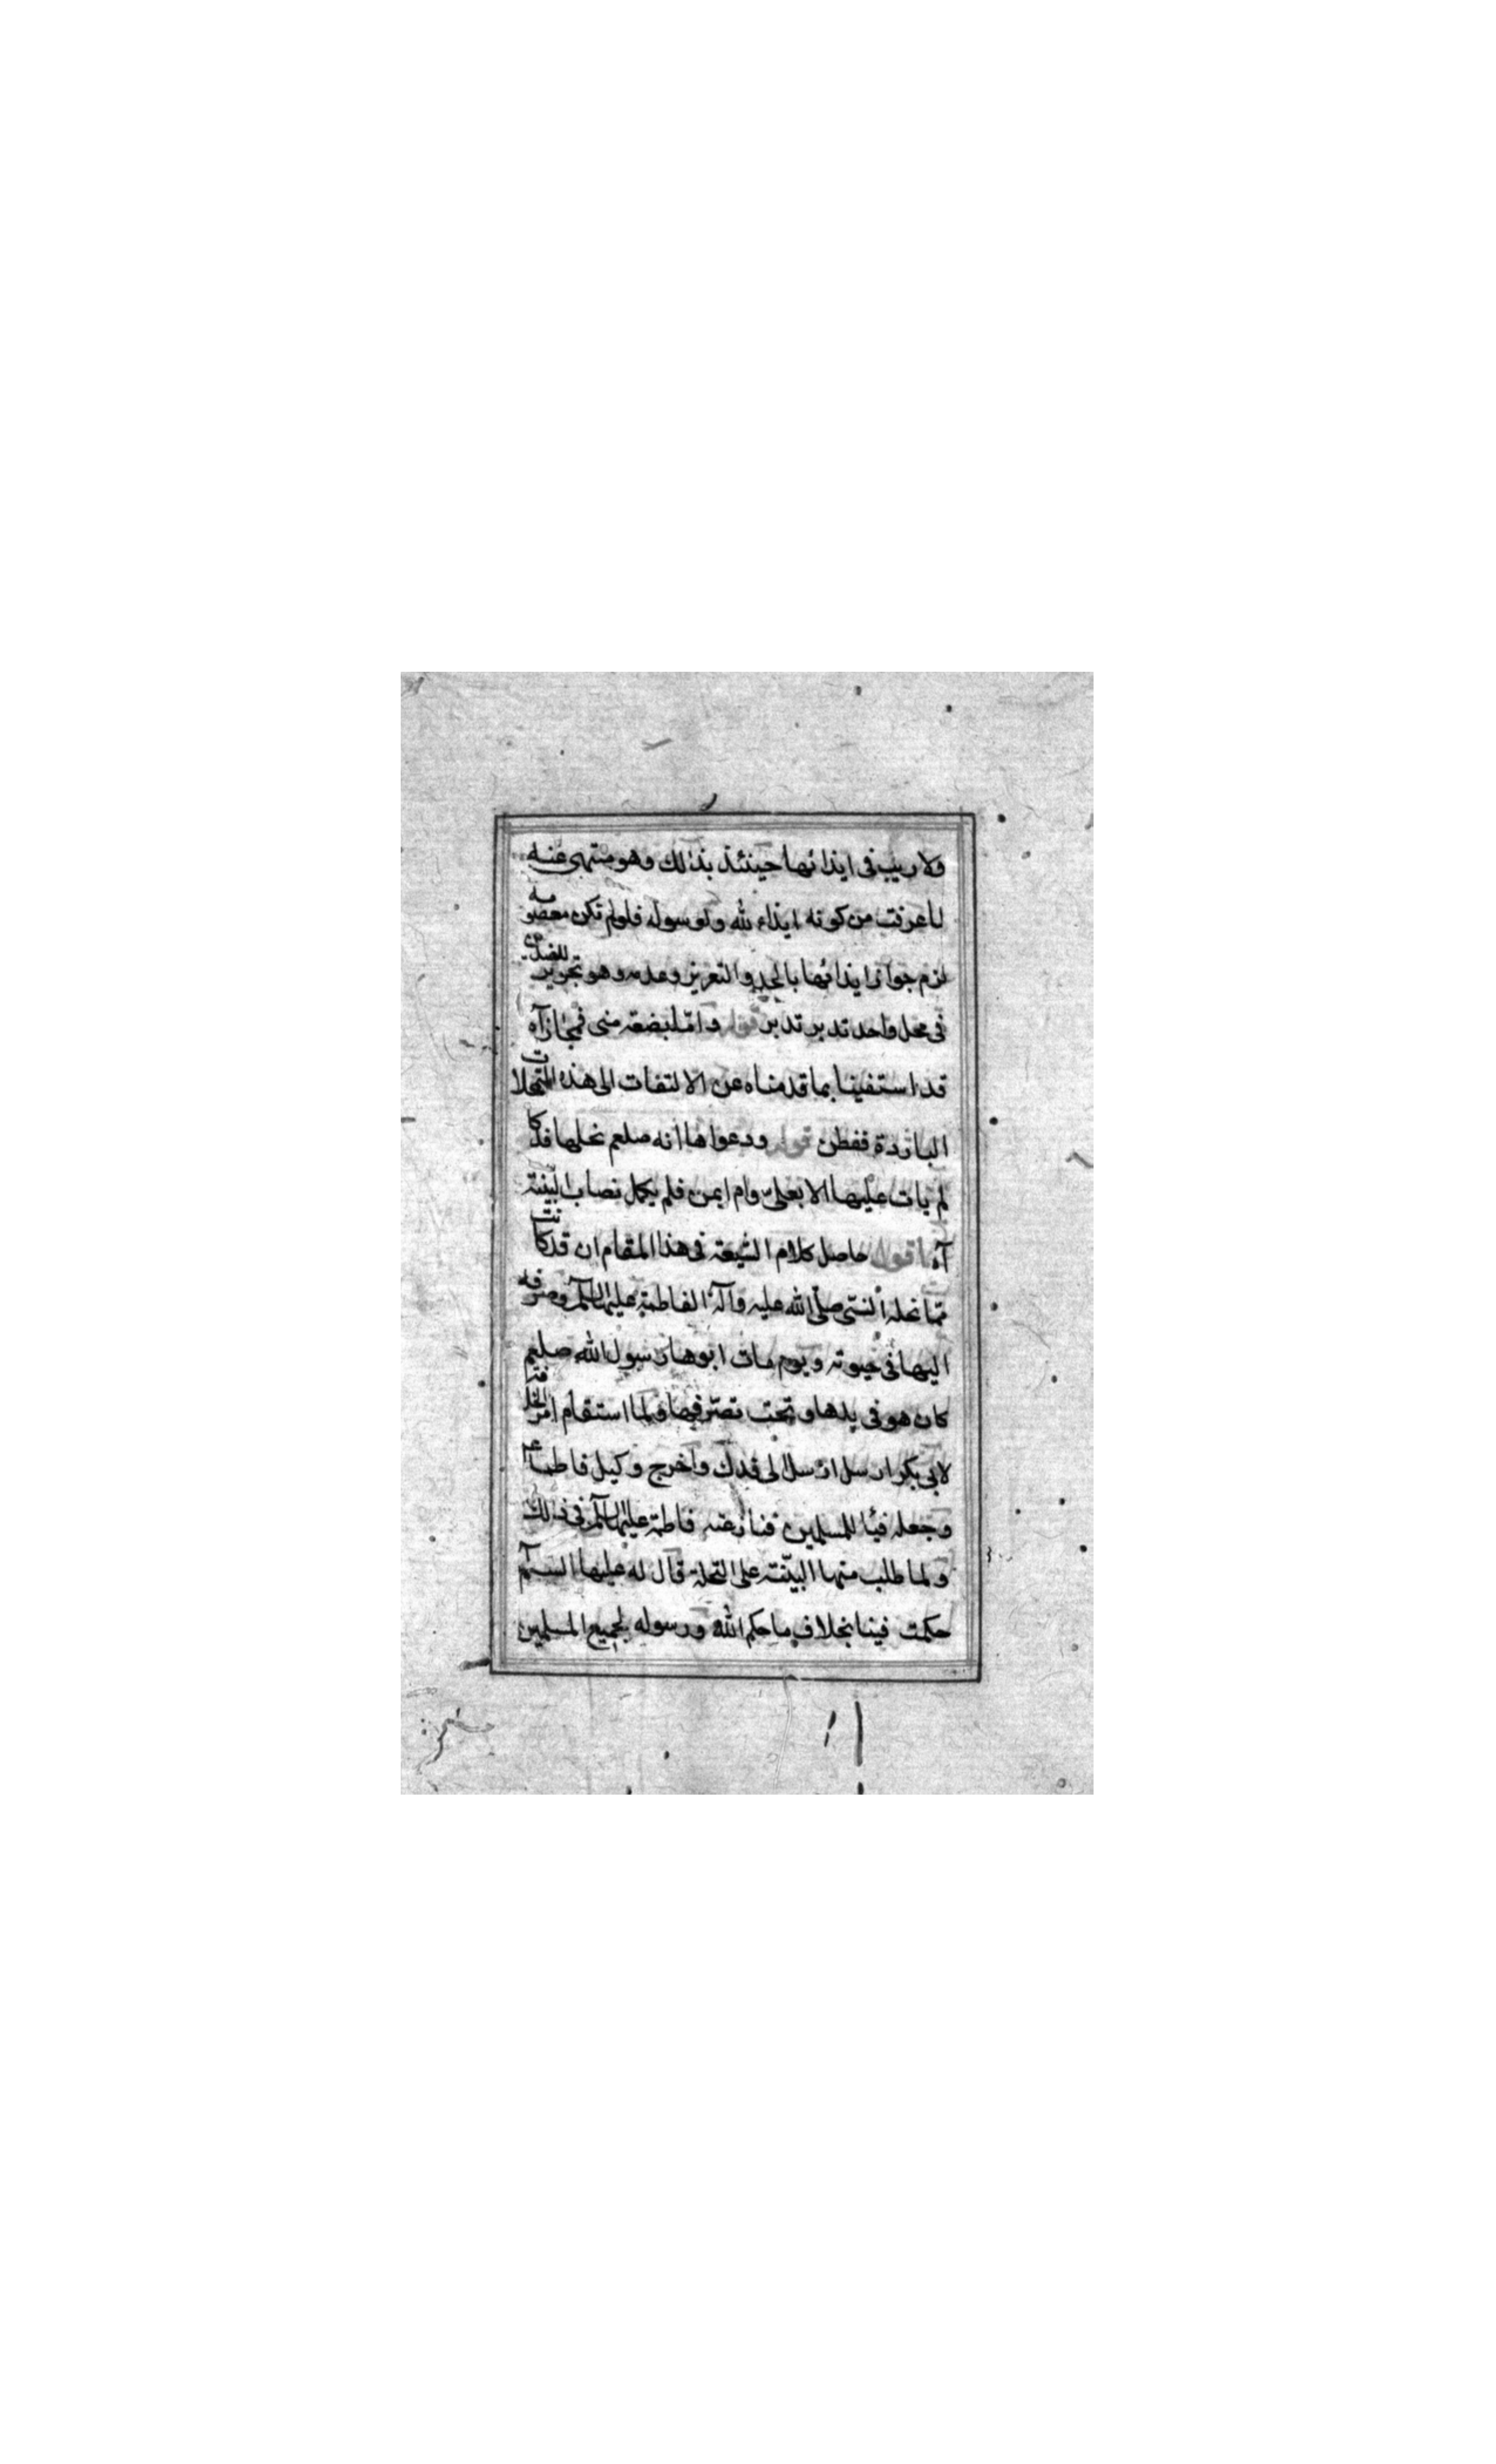 ولا ريب فى ايذائها حينئذ بذلك وهو منتهى عنه
لما عرفت من كونه ايذاء لله ولرسوله فلو لم تكن معصومه
لزم جواز ايذائها بالحد والتعزير وعدمه وهو تجويز للضدين
فى محل واحد تدبر تدبر قوله وامّا بضعة منى فمجاز آه
قد استغنينا بما قدمناه عن الالتفات الى هذه التمحلات
الباردة فتفطن قوله ودعواها انه صلعم نحلها فدكا
لم يات عليها الا بعلىّ وام ايمن فلم يكمل نصاب البيّنة
آه اقول حاصل كلام الشيعة فى هذا المقام ان فدكا كانت
ممّا نحله النبىّ صلّى الله عليه وآله لفاطمة عليها السلم وصرفه
اليها فى حيوته ويوم مات ابوها رسول الله صلعم
كان هو فى يدها وتحت تصرّفها ولما استقام امر الخلافة
لابى بكر ارسل الى فدك واخرج وكيل فاطمة عم
وجعله فيئا للمسلمين فنازعته فاطمة عليها السلم فى ذلك
ولما طلب منها البيّنة على النحلة قال له عليها السلم
حكمت فينا بخلاف ما حكم الله ورسوله لجميع المسلمين